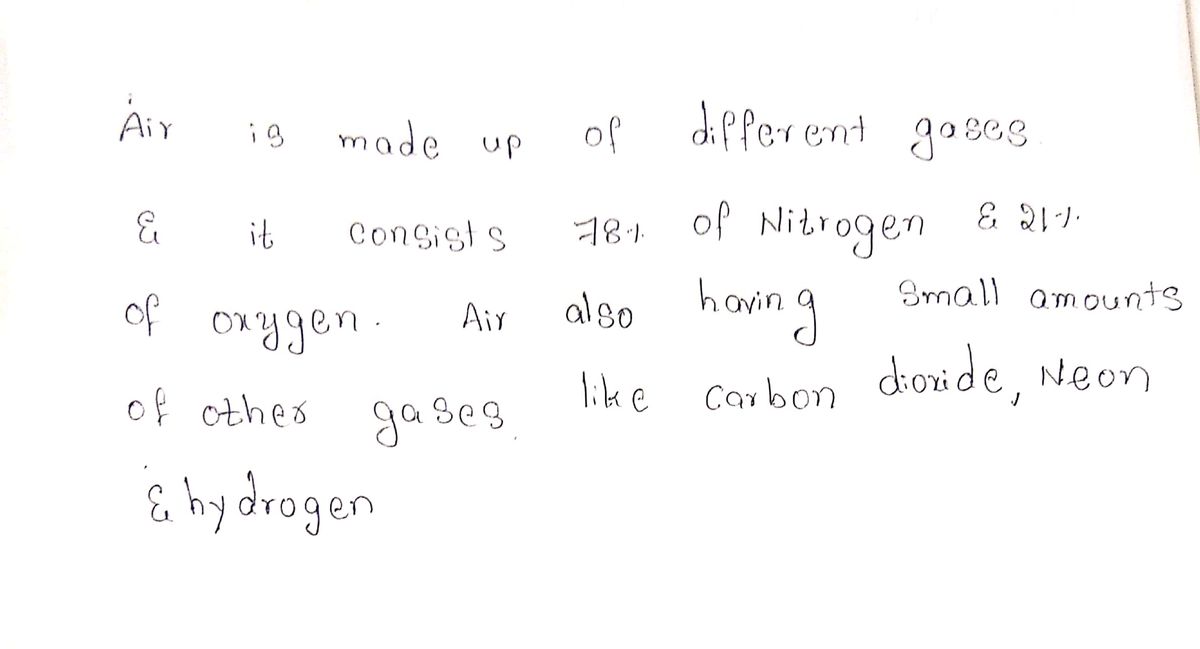 Air is made up of different gases
& it consists 78% of Nitrogen & 21%
of oxygen. Air also having small amounts
of other gases like carbon dioxide, Neon
& hydrogen